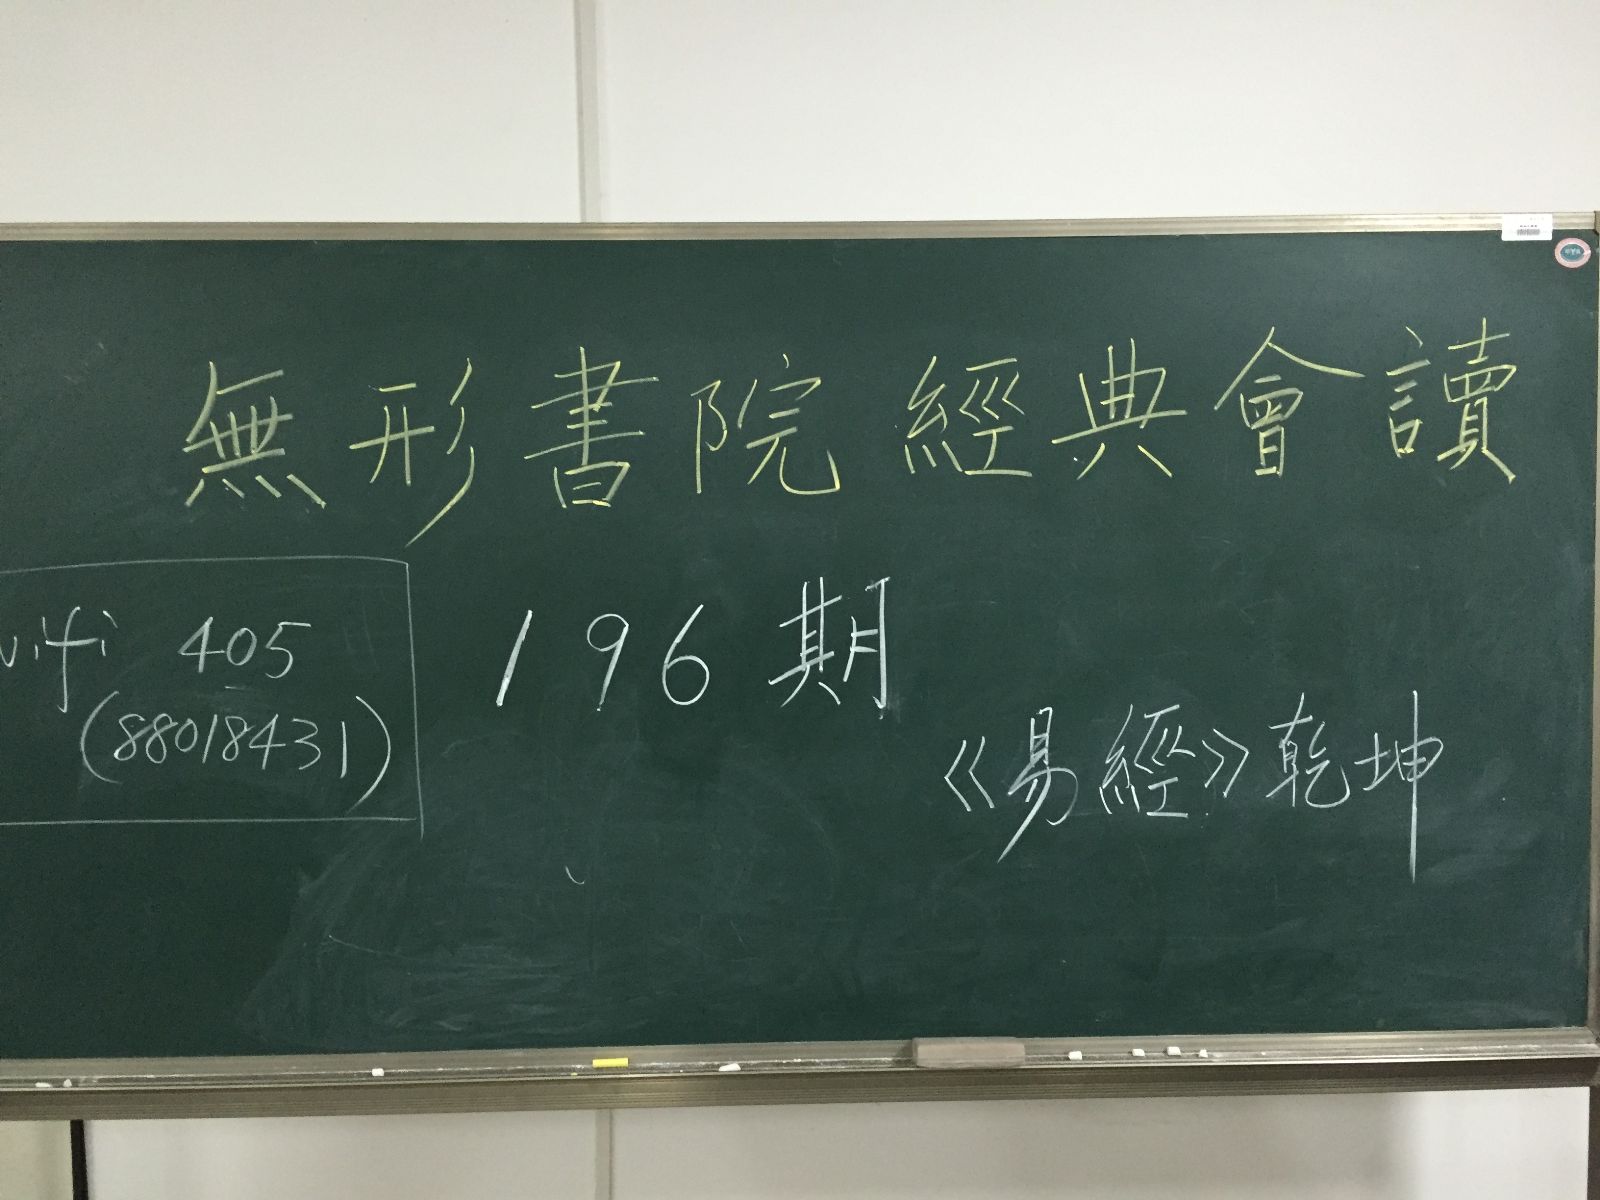 無形書院 經典會讀
wifi 405
(88018431)
196期
《易經》乾坤